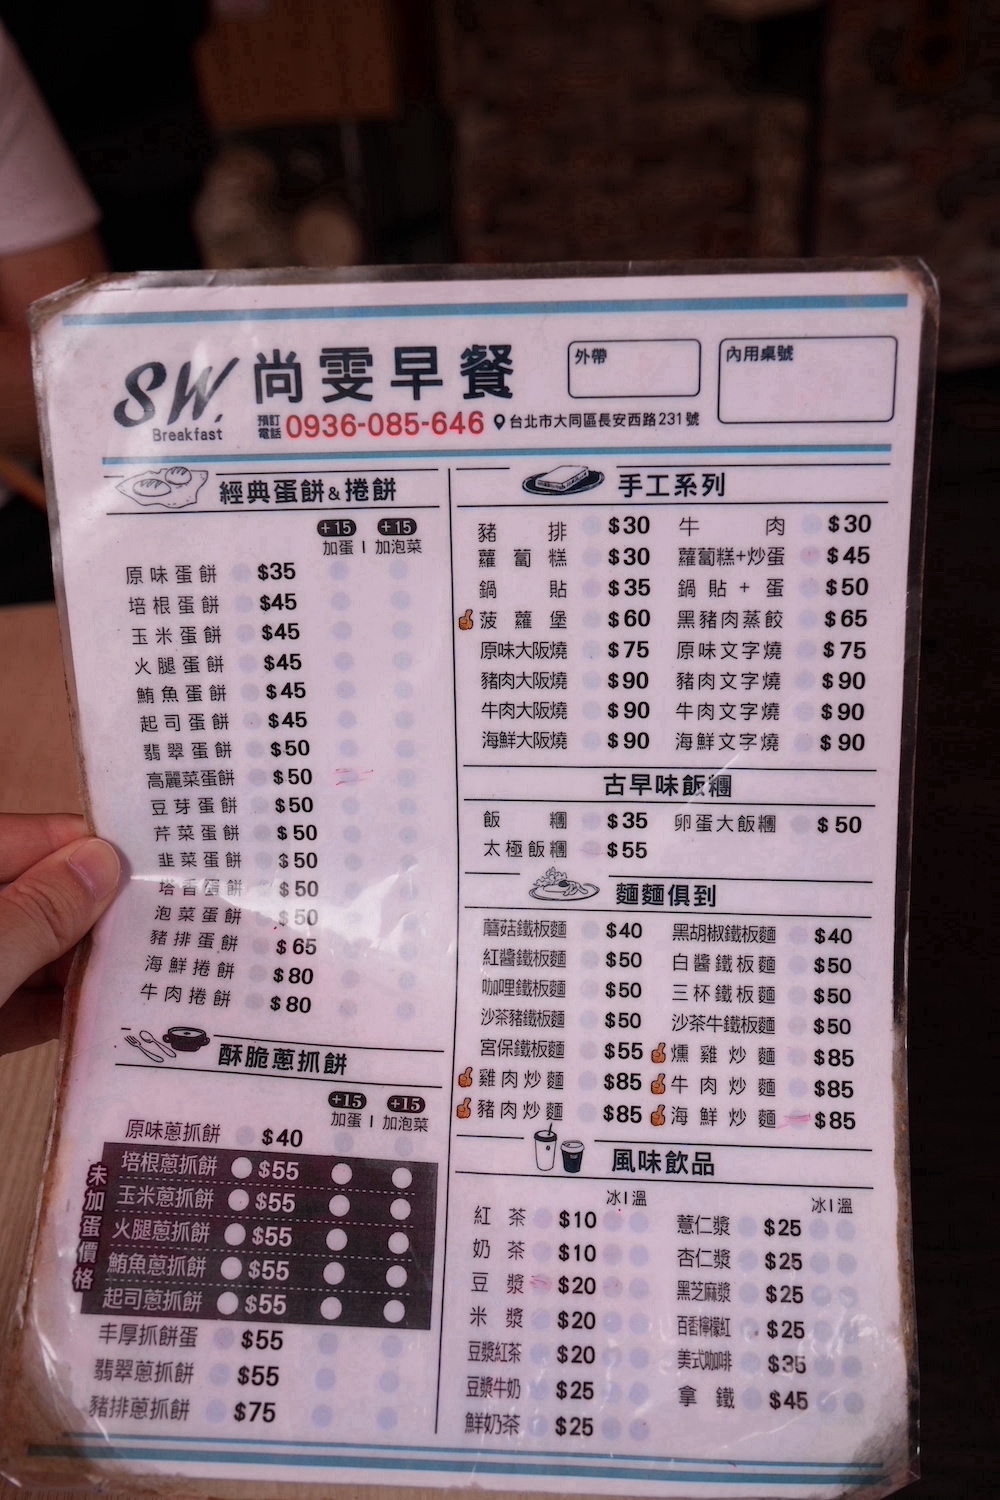 SW. 尚雯早餐
Breakfast
預訂電話 0936-085-646 台北市大同區長安西路231號
外帶
內用桌號
經典蛋餅&捲餅
+15 +15
加蛋 | 加泡菜
原味蛋餅 $35
培根蛋餅 $45
玉米蛋餅 $45
火腿蛋餅 $45
鮪魚蛋餅 $45
起司蛋餅 $45
翡翠蛋餅 $50
高麗菜蛋餅 $50
豆芽蛋餅 $50
芹菜蛋餅 $50
韭菜蛋餅 $50
塔香蛋餅 $50
泡菜蛋餅 $50
豬排蛋餅 $65
海鮮捲餅 $80
牛肉捲餅 $80
酥脆蔥抓餅
+15 +15
加蛋 | 加泡菜
原味蔥抓餅 $40
未加蛋價格
培根蔥抓餅 $55
玉米蔥抓餅 $55
火腿蔥抓餅 $55
鮪魚蔥抓餅 $55
起司蔥抓餅 $55
丰厚抓餅蛋 $55
翡翠蔥抓餅 $55
豬排蔥抓餅 $75
手工系列
豬排 $30 牛肉 $30
蘿蔔糕 $30 蘿蔔糕+炒蛋 $45
鍋貼 $35 鍋貼+蛋 $50
菠蘿堡 $60 黑豬肉蒸餃 $65
原味大阪燒 $75 原味文字燒 $75
豬肉大阪燒 $90 豬肉文字燒 $90
牛肉大阪燒 $90 牛肉文字燒 $90
海鮮大阪燒 $90 海鮮文字燒 $90
古早味飯糰
飯糰 $35 卵蛋大飯糰 $50
太極飯糰 $55
麵麵俱到
蘑菇鐵板麵 $40 黑胡椒鐵板麵 $40
紅醬鐵板麵 $50 白醬鐵板麵 $50
咖哩鐵板麵 $50 三杯鐵板麵 $50
沙茶豬鐵板麵 $50 沙茶牛鐵板麵 $50
宮保鐵板麵 $55 燻雞炒麵 $85
雞肉炒麵 $85 牛肉炒麵 $85
豬肉炒麵 $85 海鮮炒麵 $85
風味飲品
冰|溫 冰|溫
紅茶 $10 薏仁漿 $25
奶茶 $10 杏仁漿 $25
豆漿 $20 黑芝麻漿 $25
米漿 $20 百香檸檬紅 $25
豆漿紅茶 $20 美式咖啡 $35
豆漿牛奶 $25 拿鐵 $45
鮮奶茶 $25